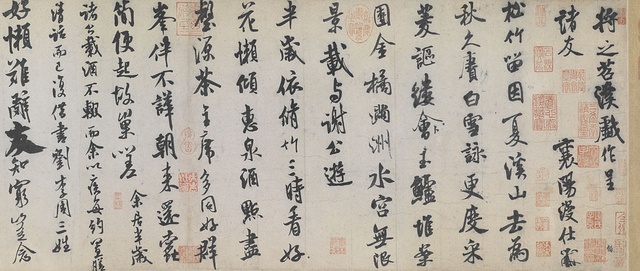 將之苕溪戲作呈
諸友
襄陽漫仕黻
松竹留因夏溪山去為
秋久賡白雪詠更度采
菱謳縷會玉鱸堆案
團金橘滿洲水宮無限
景載与謝公遊
半歲依脩竹三時看好
花懶傾惠泉酒點盡
壑源茶主席多同好群
峯伴不譁朝來還蠹
簡便起故巢嗟
余居半歲
諸公載酒不輟而余以疾每約置膳
清話而已復借書劉李周三姓
好懶難辭友知窮豈念